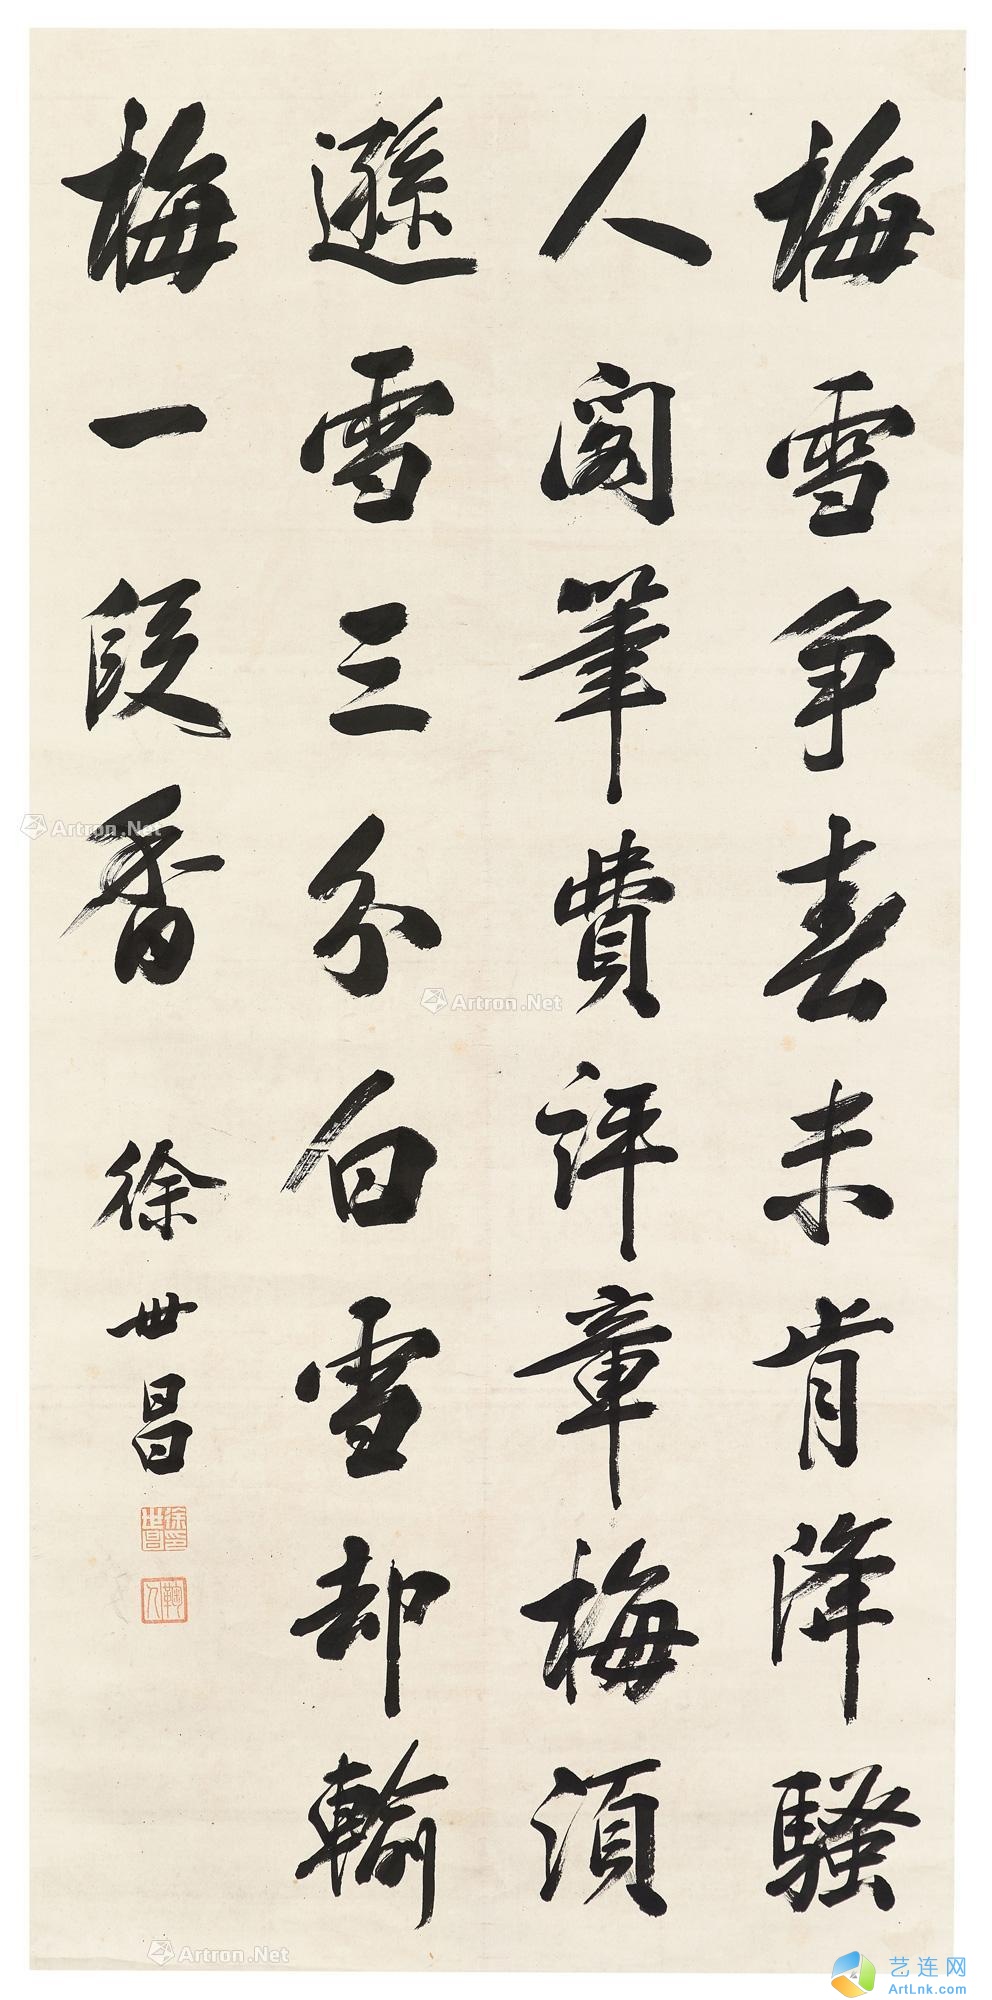 梅雪争春未肯降騷
人阁筆費評章梅須
遜雪三分白雪却輸
梅一段香
徐世昌
徐世昌印
鞠人
Artron.Net
Artron.Net
Artron.Net
艺连网
ArtLnk.com